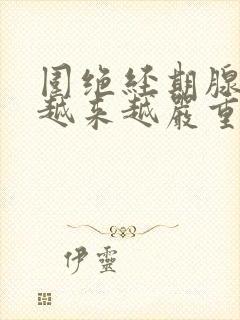 围绝经期腺
越来越严重
伊靈